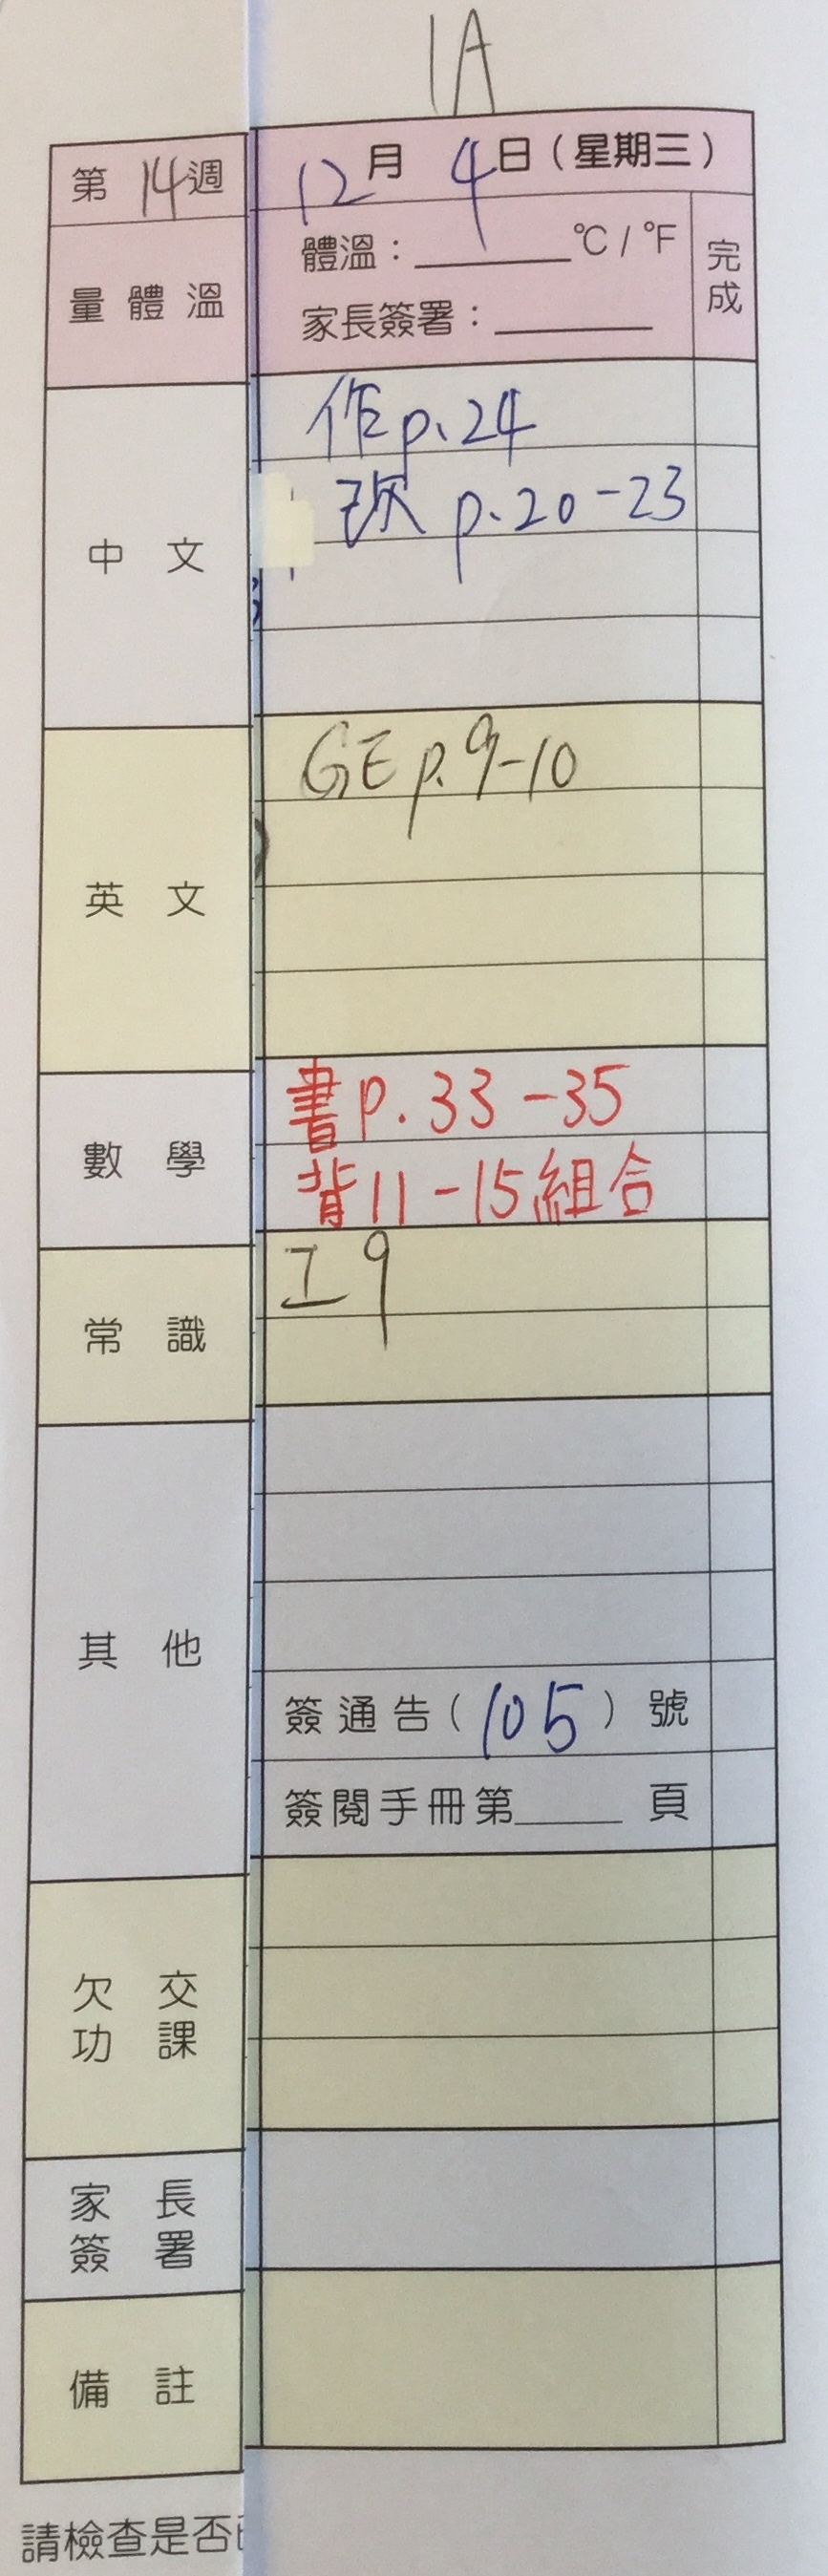 1A
第 14 週 12 月 4 日 ( 星期三 )
量體溫 體溫：______ °C / °F 完成
家長簽署：______
中文 作 p.24
p.20-23
英文 GE p.9-10
數學 書 p.33-35
背 11-15 組合
常識 工 9
其他
簽通告 ( 105 ) 號
簽閱手冊第____頁
欠交功課
家長簽署
備註
請檢查是否